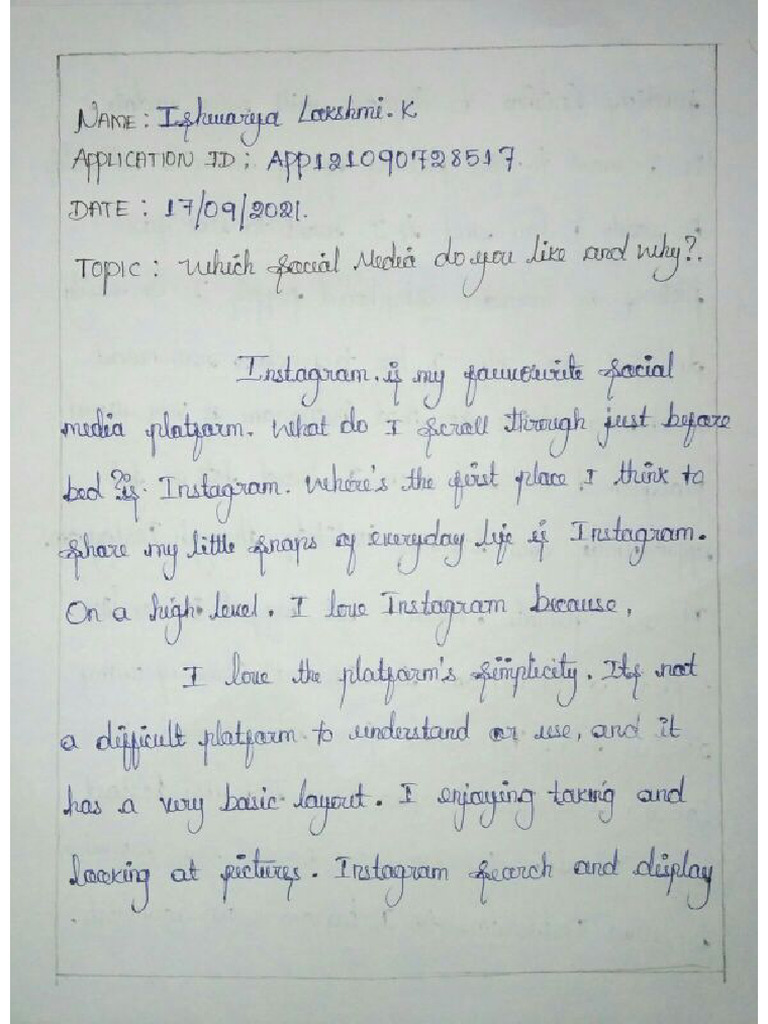 NAME: Ishwarya Lakshmi. K
APPLICATION ID: APP121090728517.
DATE: 17/09/2021.
TOPIC: Which Social Media do you like and why?.
Instagram. is my favuourite social
media platform. What do I scroll through just before
bed? is. Instagram. Where's the first place I think to
share my little snaps of everyday life is Instagram.
On a high level. I love Instagram because,
I love the platform's simplicity. Its not
a difficult platform to understand or use, and it
has a very basic layout. I enjoying taking and
looking at pictures. Instagram search and display